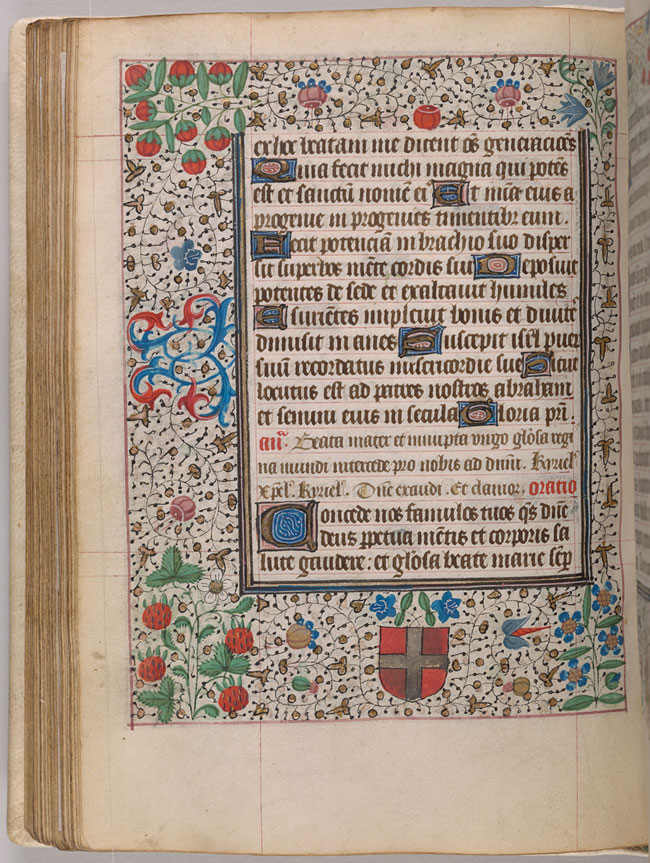 ex hoc beatam me dicent oēs generaciōēs
Quia fecit michi magna qui potēs
est et sanctū nomē ei Et mīa eius a
progenie in progenies timentibz eum .
Fecit potenciā in brachio suo disper
sit superbos mēte cordis sui Deposuit
potentes de sede et exaltavit humiles
Esurientes implevit bonis et divite᷒
dimisit in anes Suscepit isrl puer
suū recordatus misericordie sue Sicut
locutus est ad patres nostros abraham
et semini eius in secula Gloria pr̄i .
añ . Beata mater et innupta virgo glōsa regi
na mundi intercede pro nobis ad dnm̄ . Kyriel᷒
Xpel᷒ . Kyriel᷒ . Dn̄e exaudi . Et clamor . oratio
Concede nos famulos tuos qs̄ dn̄e
deus ꝑpetua mētis et corporis sa
lute gaudere : et glōsa beate marie semꝑ